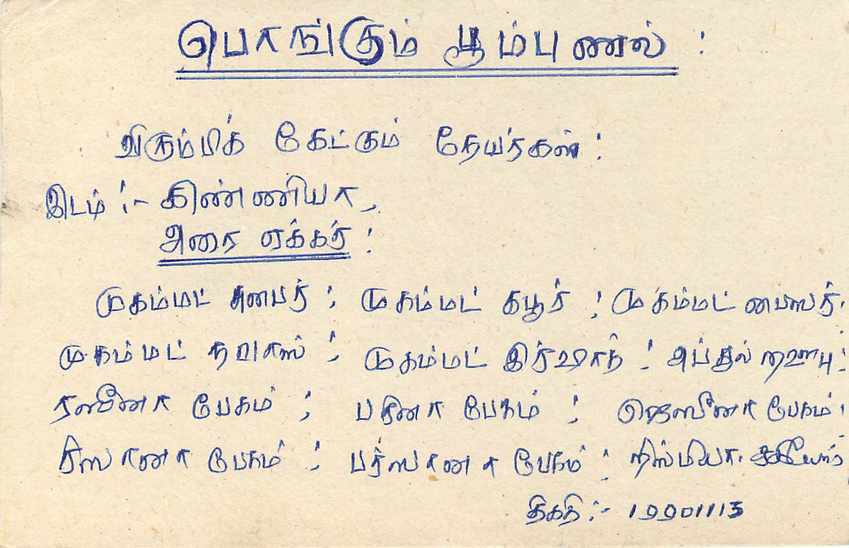 பொங்கும் பூம்புணல் :
விரும்பிக் கேட்கும் நேயர்கள் :
இடம் :- கிண்ணியா,
அரை ஏக்கர் :
முகம்மட் அனபர் ; முகம்மட் கபூர் ; முகம்மட் பைஸர்.
முகம்மட் நவாஸ் ; முகம்மட் இர்ஷாத் ; அப்துல் ஹைபு ;
ரஸீனா பேகம் ; பரினா பேகம் ; ஜெஸீனா பேகம் ,
ரிஸானா பேகம் ; பர்ஸானா பேகம் ; நிஸ்மியா. ஆகியோர்
திகதி :- 19901113